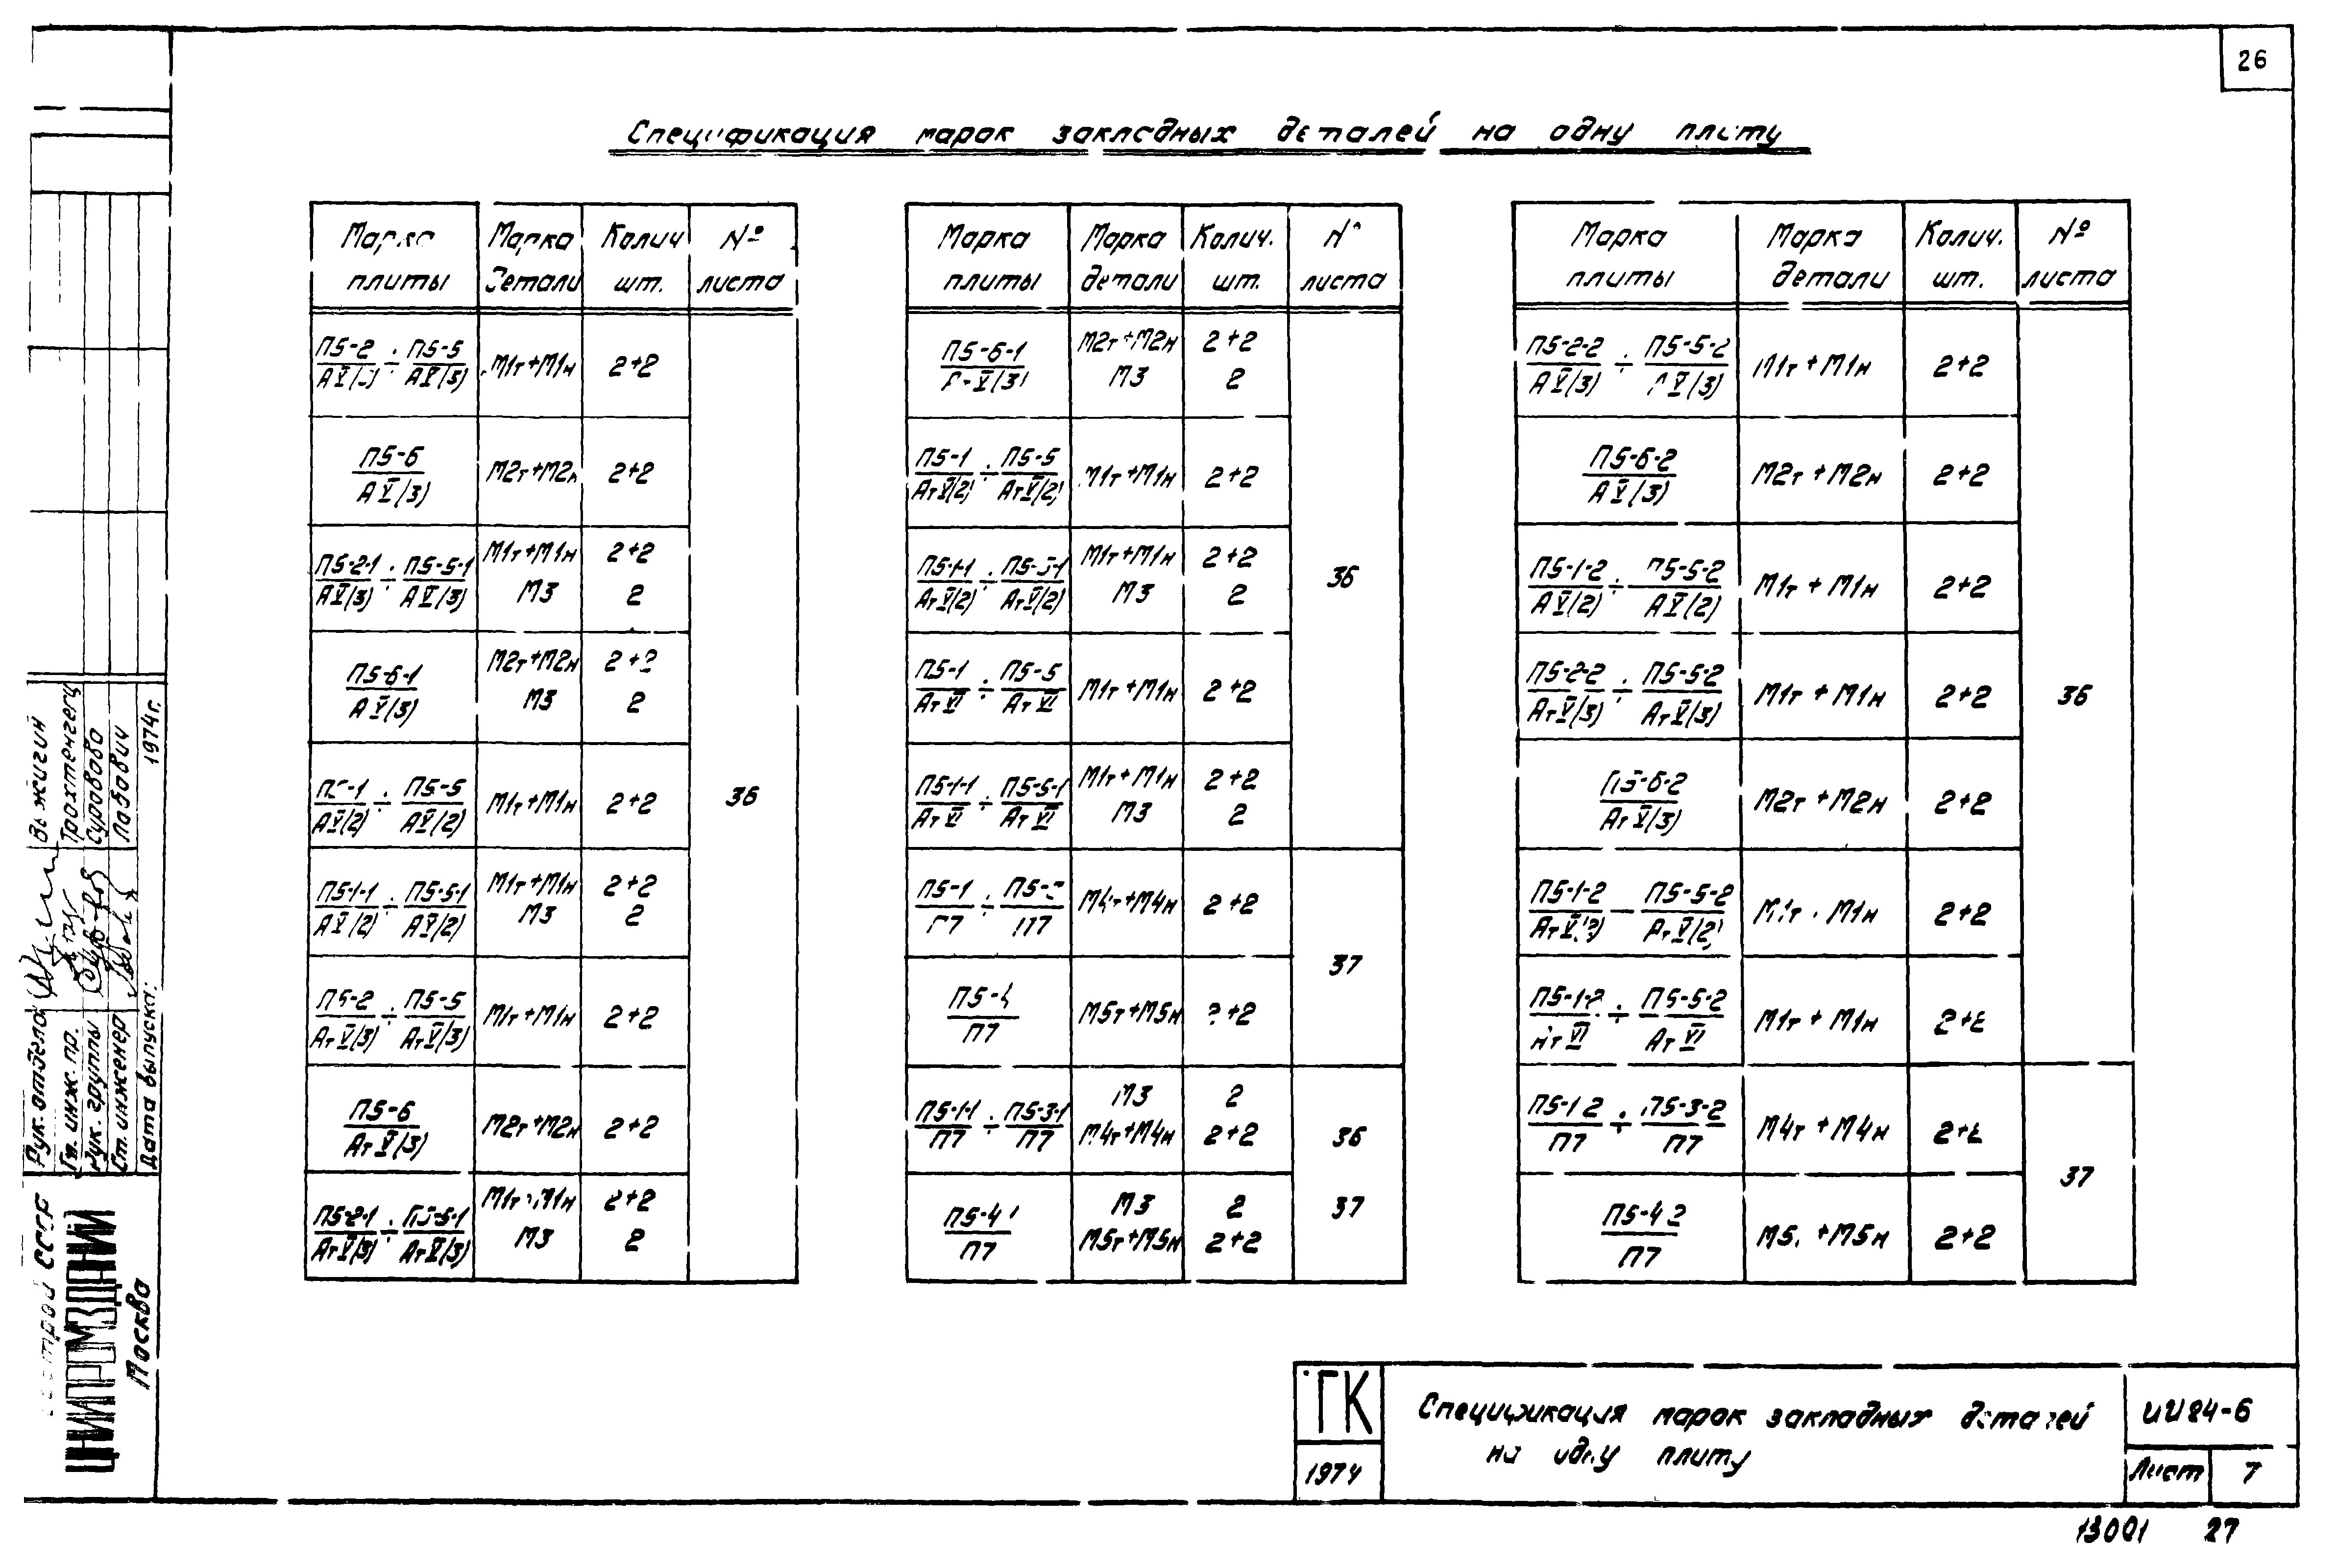 26
Спецификация марок закладных деталей на одну плиту
Марка плиты | Марка детали | Колич шт. | № листа
П5-2/АV(3) ÷ П5-5/АV(3) | М1т+М1н | 2+2 | 36
П5-6/АV(3) | М2т+М2н | 2+2
П5-2-1/АV(3) ÷ П5-5-1/АV(3) | М1т+М1н | 2+2
М3 | 2
П5-6-1/АV(3) | М2т+М2н | 2+2
М3 | 2
П5-1/АV(2) ÷ П5-5/АV(2) | М1т+М1н | 2+2
П5-1-1/АV(2) ÷ П5-5-1/АV(2) | М1т+М1н | 2+2
М3 | 2
П5-2/АтV(3) ÷ П5-5/АтV(3) | М1т+М1н | 2+2
П5-6/АтV(3) | М2т+М2н | 2+2
П5-2-1/АтV(3) ÷ П5-5-1/АтV(3) | М1т+М1н | 2+2
М3 | 2
Марка плиты | Марка детали | Колич. шт. | № листа
П5-6-1/АтV(3) | М2т+М2н | 2+2 | 36
М3 | 2
П5-1/АтV(2) ÷ П5-5/АтV(2) | М1т+М1н | 2+2
П5-1-1/АтV(2) ÷ П5-5-1/АтV(2) | М1т+М1н | 2+2
М3 | 2
П5-1/АтVI ÷ П5-5/АтVI | М1т+М1н | 2+2
П5-1-1/АтVI ÷ П5-5-1/АтVI | М1т+М1н | 2+2
М3 | 2
П5-1/П7 ÷ П5-3/П7 | М4т+М4н | 2+2 | 37
П5-4/П7 | М5т+М5н | 2+2
П5-1-1/П7 ÷ П5-3-1/П7 | М3 | 2 | 36
М4т+М4н | 2+2
П5-4-1/П7 | М3 | 2 | 37
М5т+М5н | 2+2
Марка плиты | Марка детали | Колич. шт. | № листа
П5-2-2/АV(3) ÷ П5-5-2/АV(3) | М1т+М1н | 2+2 | 36
П5-6-2/АV(3) | М2т+М2н | 2+2
П5-1-2/АV(2) ÷ П5-5-2/АV(2) | М1т+М1н | 2+2
П5-2-2/АтV(3) ÷ П5-5-2/АтV(3) | М1т+М1н | 2+2
П5-6-2/АтV(3) | М2т+М2н | 2+2
П5-1-2/АтV(2) ÷ П5-5-2/АтV(2) | М1т+М1н | 2+2
П5-1-2/АтVI ÷ П5-5-2/АтVI | М1т+М1н | 2+2
П5-1-2/П7 ÷ П5-3-2/П7 | М4т+М4н | 2+2 | 37
П5-4-2/П7 | М5т+М5н | 2+2
Рук. отдела
Гл. инж. пр. Трохтенгерц
Рук. группы Суровова
Ст. инженер Лабович
Дата выпуска: 1974г.
СССР
ЦНИИПРОМЗДАНИЙ
Москва
ТК
1974
Спецификация марок закладных деталей
на одну плиту
ИИ24-6
Лист 7
13001 27